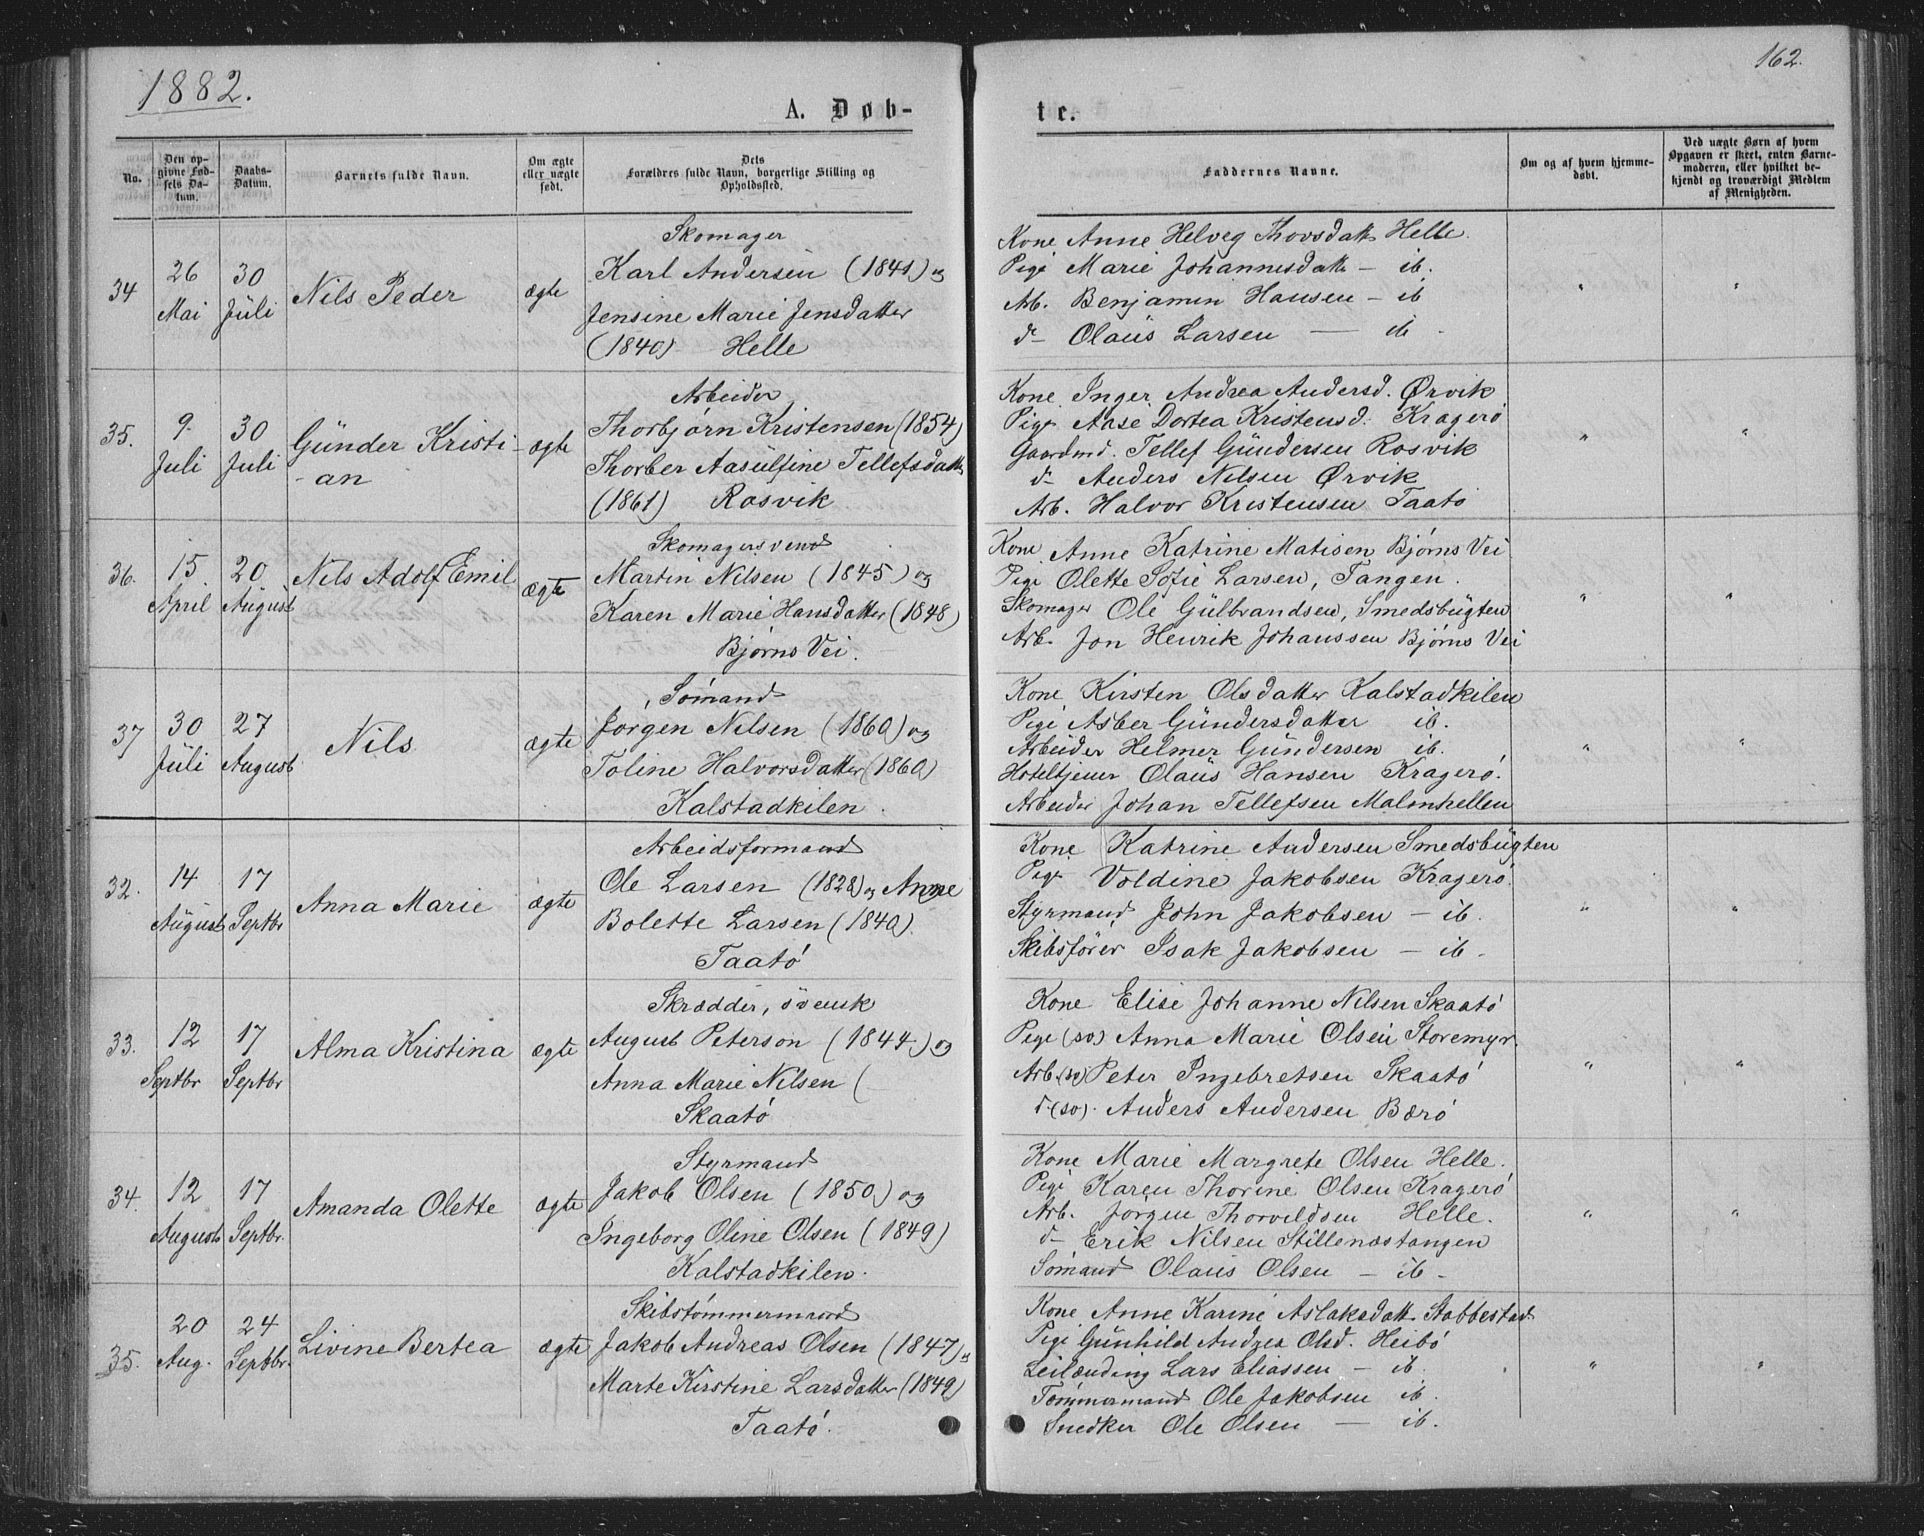 1882.
162.
A. Døb-
te.
No.
Den op-
givne Fød-
sels Da-
tum.
Daabs-
Datum.
Barnets fulde Navn.
Om ægte
eller uægte
født.
Dets
Forældres fulde Navn, borgerlige Stilling og
Opholdssted.
Faddernes Navne.
Om og af hvem hjemme-
døbt.
Ved uægte Børn af hvem
Opgaven er skeet, enten Barne-
moderen, eller hvilket be-
kjendt og troværdigt Medlem
af Menigheden.
34
26
Mai
30
Juli
Nils Peder
ægte
Skomager
Karl Andersen (1841) og
Jensine Marie Jensdatter
(1840) Helle
Kone Anne Helveg Thovsdatt Helle.
Pige Marie Johannesdatt — ib.
Arb. Benjamin Hansen — ib
d— Olaüs Larsen — ib
"
"
35.
9.
Juli
30
Juli
Günder Kristi-
-an
ægte
Arbeider
Thorbjørn Kristensen (1854)
Thorber Aasulfine Tellefsdatt
(1861) Rosvik
Kone Inger Andrea Andersd. Ørvik
Pige Aase Dortea Kristensd. Kragerø
Gaardmd. Tellef Gündersen Rosvik
d— Anders Nilsen Ørvik
Arb. Halvor Kristensen Taatø
"
"
36.
15
April
20
August
Nils Adolf Emil
ægte
Skomagersvend
Martin Nilsen (1845) og
Karen Marie Hansdatter (1848)
Bjørns Vei.
Kone Anne Katrine Matisen Bjørns Vei
Pige Olette Sofie Larsen, Tangen.
Skomager Ole Gülbrandsen, Smedsbügten
Arb. Jon Henrik Johanssen Bjørns Vei
"
"
37
30
Jüli
27
August
Nils
ægte
Sømand
Jørgen Nilsen (1860) og
Toline Halvorsdatter (1860)
Kalstadkilen.
Kone Kirsten Olsdatter Kalstadkilen
Pige Asber Gündersdatter ib.
Arbeider Helmer Gündersen ib.
Hoteltjener Olaüs Hansen Kragerø.
Arbeider Johan Tellefsen Malmhellen
"
"
32.
14
August
17
Septbr
Anna Marie
ægte
Arbeidsformand
Ole Larsen (1828) og Anne
Bolette Larsen (1840).
Taatø
Kone Katrine Andersen Smedsbügten
Pige Voldine Jakobsen Kragerø.
Styrmand John Jakobsen — ib.
Skibsfører Isak Jakobsen — ib.
"
"
33.
12
Septbr
17
Septbr
Alma Kristina
ægte
Skrædder, svensk
August Peterson (1844) og
Anna Marie Nilsen (
Skaatø
Kone Elise Johanne Nilsen Skaatø
Pige (so) Anna Marie Olsen Storemyr.
Arb. (so) Peter Ingebretsen Skaatø
d— (so). Anders Andersen Bærø
"
"
34.
12
August
17
Septbr.
Amanda Olette
ægte
Styrmand
Jakob Olsen (1850) og
Ingeborg Oline Olsen (1849)
Kalstadkilen.
Kone Marie Margrete Olsen Helle.
Pige Karen Thorine Olsen Kragerø
Arb. Jørgen Thorvildsen Helle.
d— Erik Nilsen Stillenæstangen
Sømand Olaüs Olsen — ib —
"
"
35.
20
Aug.
24
Septbr.
Livine Bertea
ægte
Skibstømmermand
Jakob Andreas Olsen (1847) "
Marte Kirstine Larsdatter (1849)
Taatø.
Kone Anne Karine Aslaksdatt. Stabbestad
Pige Gunhild Andrea Olsd. Heibø
Leilænding Lars Eliassen — ib.
Tømmermand Ole Jakobsen ib.
Snedker Ole Olsen — ib.
"
"